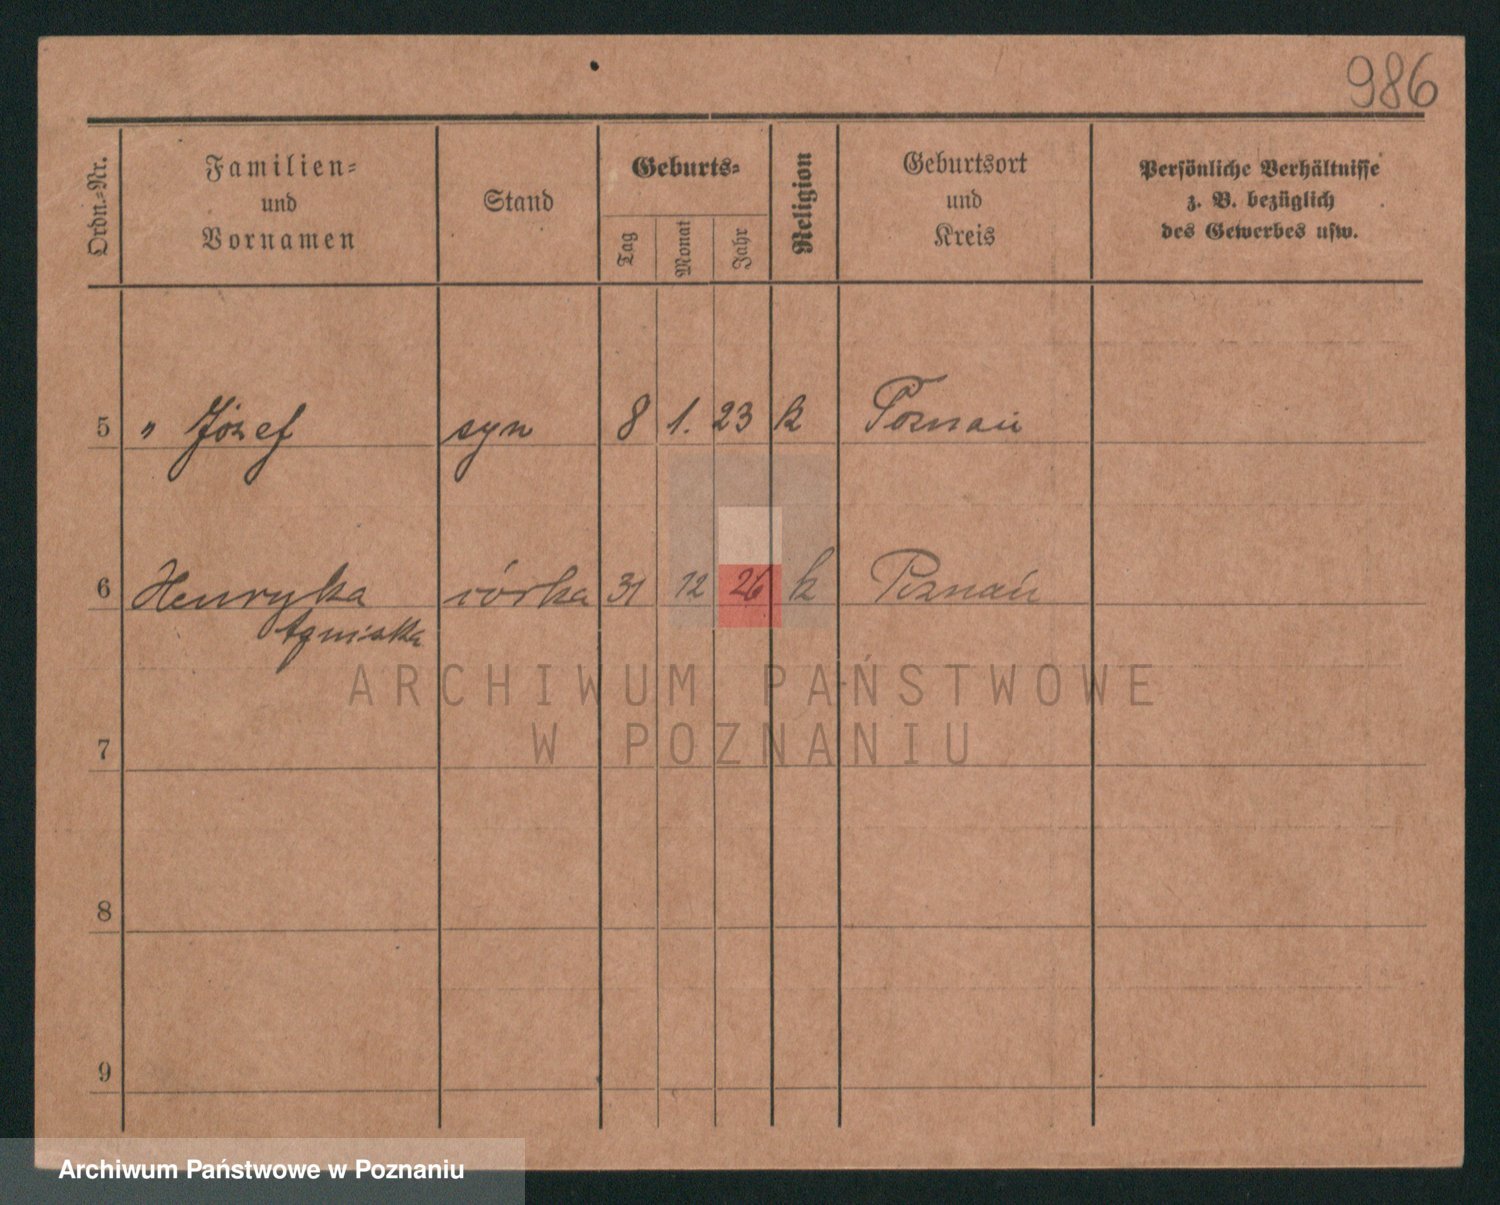 986
Ordn.-Nr.
Familien-
und
Vornamen
Stand
Geburts-
Tag
Monat
Jahr
Religion
Geburtsort
und
Kreis
Persönliche Verhältnisse
z. B. bezüglich
des Gewerbes usw.
5 " Józef syn 8 1. 23 k Poznań
6 Henryka córka 31 12 26 k Poznań
7
8
9
ARCHIWUM PAŃSTWOWE
W POZNANIU
Archiwum Państwowe w Poznaniu